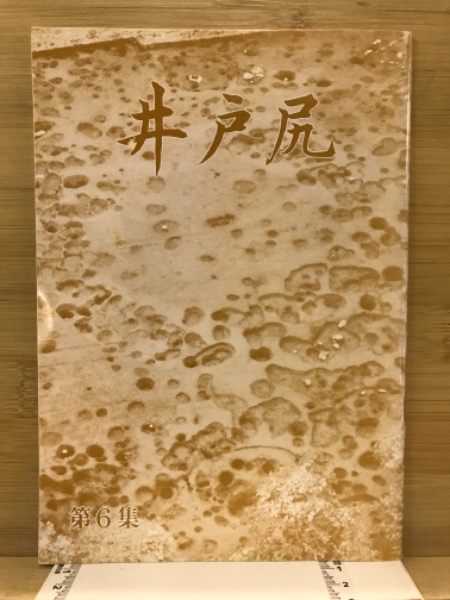 井戸尻
第6集